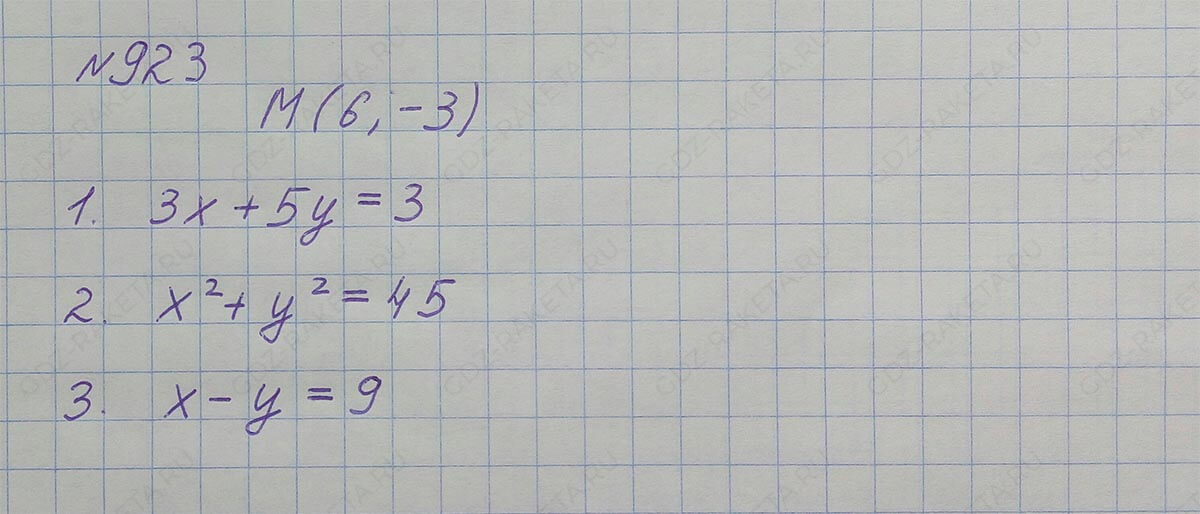 №923
M(6; -3)
1. 3x + 5y = 3
2. x² + y² = 45
3. x - y = 9
GDZ-RAKETA.RU